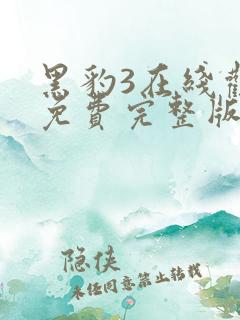 黑豹3在线观
免费完整版
隐侠
未经同意禁止转载